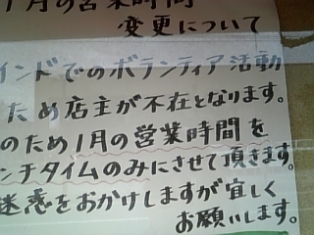 1月の営業時間
変更について
インドでのボランティア活動
ため店主が不在となります。
のため1月の営業時間を
ンチタイムのみにさせて頂きます。
迷惑をおかけしますが宜しく
お願いします。